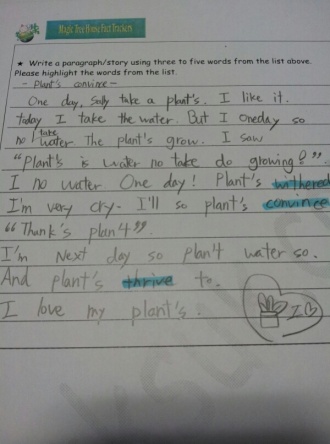 Magic Tree House Fact Trackers
★ Write a paragraph/story using three to five words from the list above.
Please highlight the words from the list.
- Plant's convince -
One day, Sally take a plant's. I like it.
today I take the water. But I oneday so
no take water. The plant's grow. I saw
"Plant's is water no take do growing?".
I no water. One day! Plant's withered
I'm very cry. I'll so plant's convince
"Thank's plan4".
I'm Next day so plan4 water so.
And plant's thrive to.
I love my plant's.
I